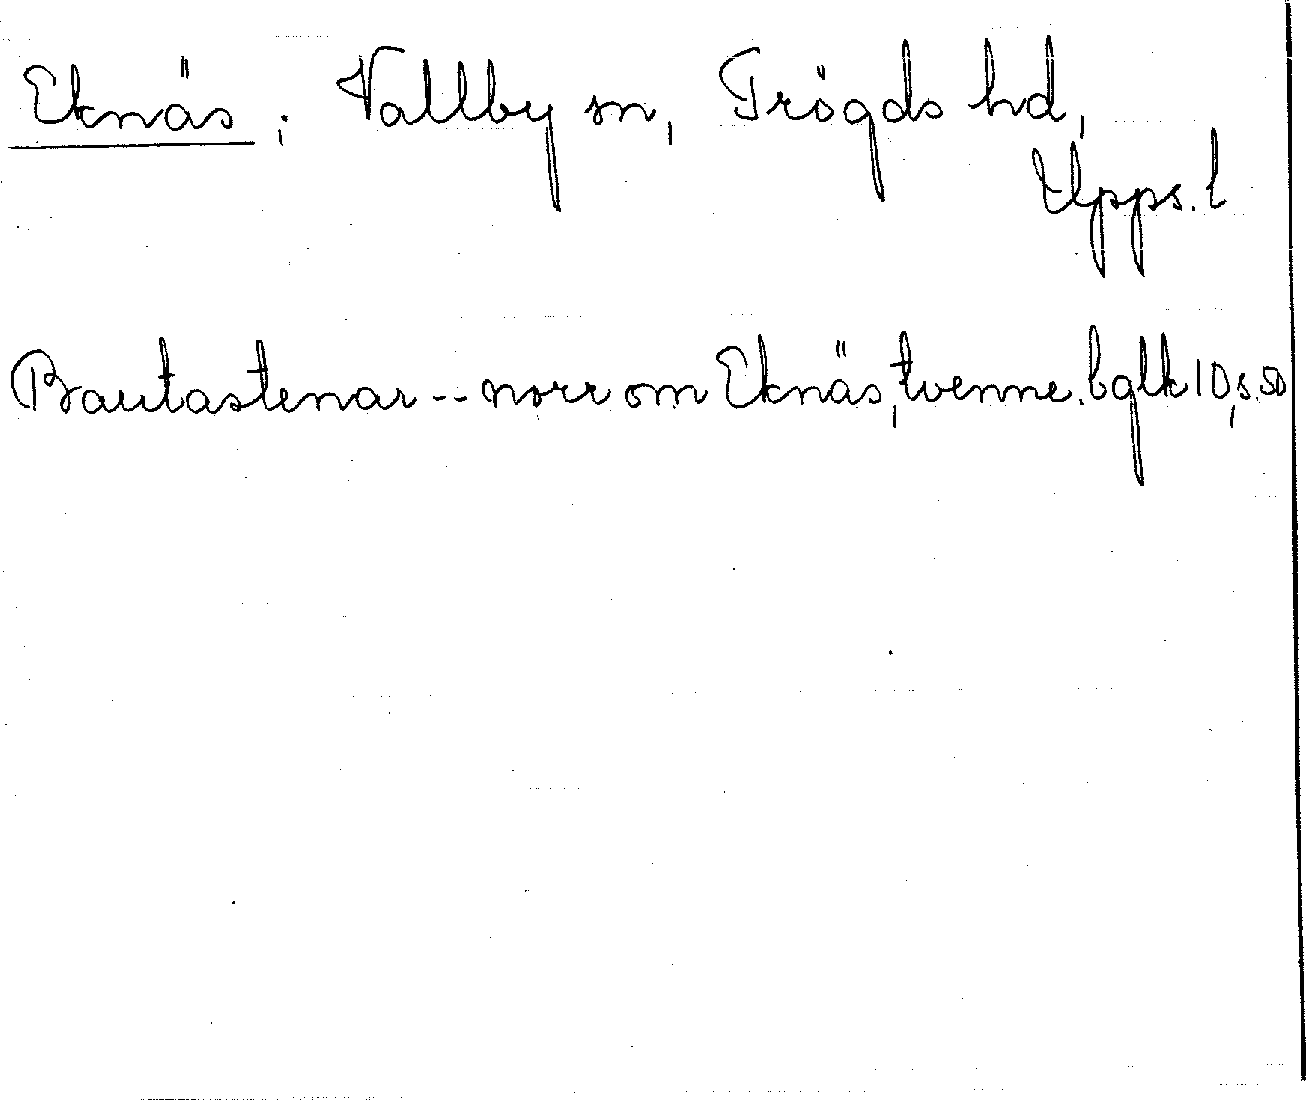 Eknäs; Vallby sn, Trögds hd,
Upps. l
Bautastenar -- norr om Eknäs, tvenne. bglk 10, s. 50